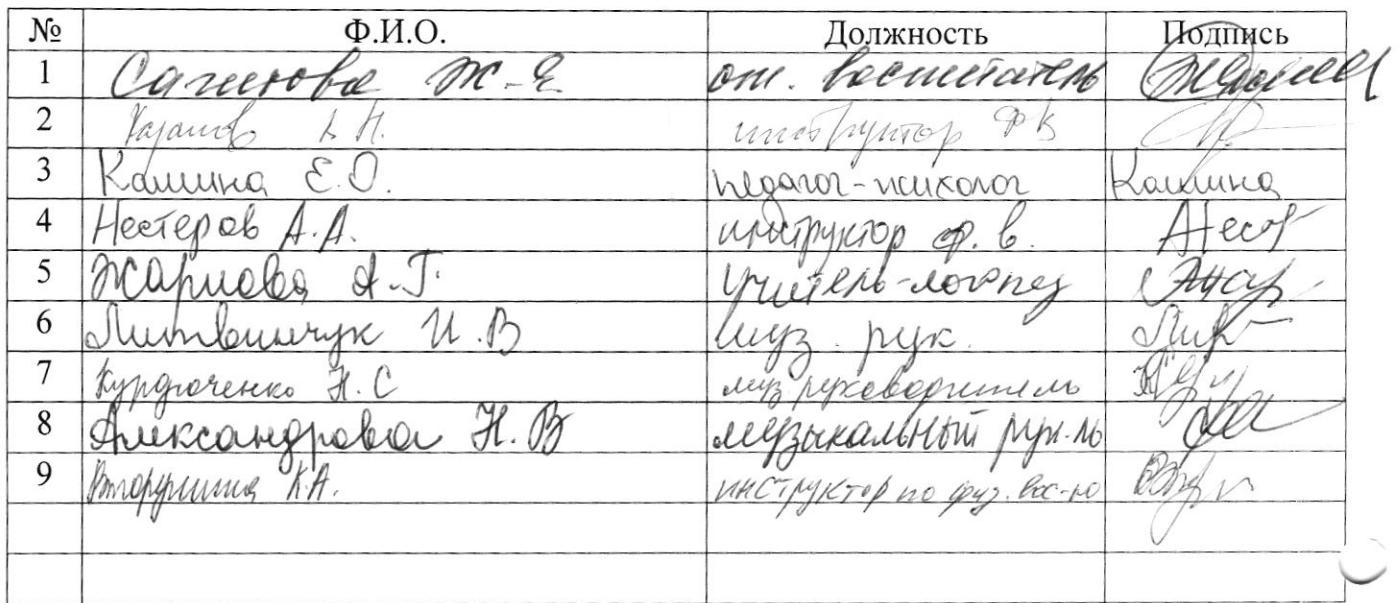 № Ф.И.О. Должность Подпись
1 Ж.Е ст. воспитатель
2 инструктор ФВ
3 Камина Е.О. педагог-психолог Камина
4 Нестеров А.А. инструктор ф.в. Нест
5 Жарикова А.Г. учитель-логопед Жар
6 Литвинчук И.В муз. рук.
7 Курдюченко Н.С муз руководитель
8 Александрова Н.В музыкальный рук-ль
9 К.А. инструктор по физ. вос-ю